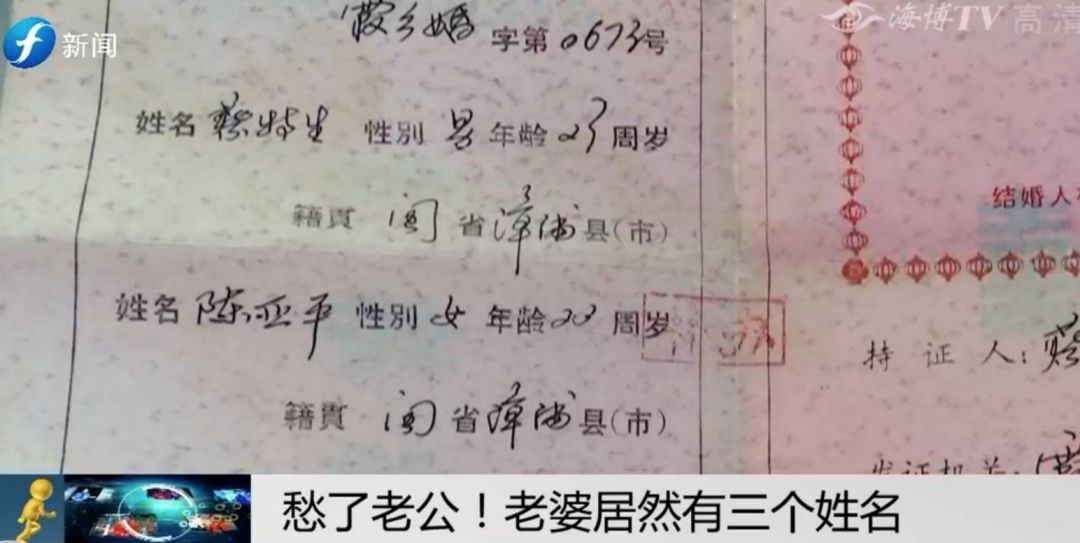 新闻
海博TV 高清
霞乡婚 字第0673号
姓名 蔡特生 性別 男 年龄 23 周岁
籍貫 闽 省 漳浦 县(市)
姓名 陈亚平 性別 女 年龄 22 周岁
籍貫 闽 省 漳浦 县(市)
结婚人
持证人:蔡
发证机关:霞
愁了老公!老婆居然有三个姓名